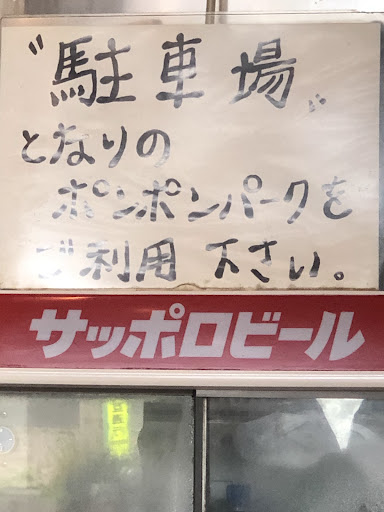 〝駐車場〟
となりの
ポンポンパークを
ご利用 下さい。
サッポロビール